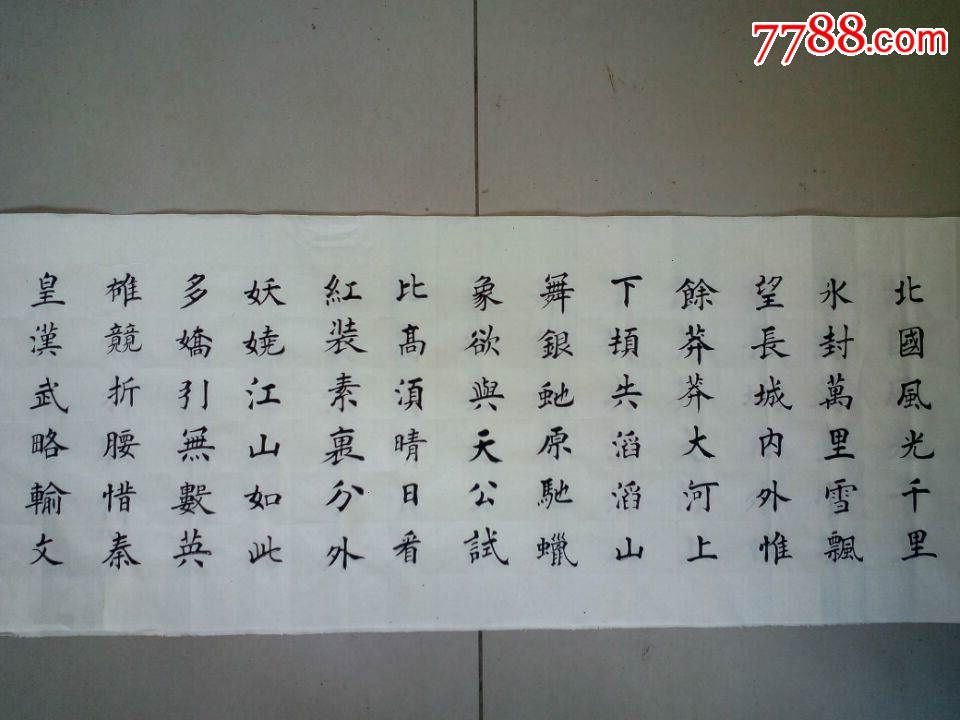 7788.com
北國風光千里
氷封萬里雪飄
望長城内外惟
餘莽莽大河上
下頓失滔滔山
舞銀虵原馳蠟
象欲與天公試
比髙湏晴日看
紅装素裹分外
妖嬈江山如此
多嬌引無數英
雄競折腰惜秦
皇漢武略輸文